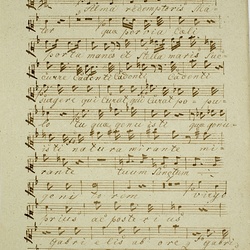 Alma redemptoris Ma-
ter quae pervia Caeli
porta manes et Stella maris Suc-
curre Cadenti Cadenti Cadenti
surgere qui Curat qui Curat po-pu-
lo tu quae genu isti quae genu-
isti natura mirante mi-
rante tuum Sanctum
geni to rem virgo
prius ac posterius
Gabri e lis ab ore Gabri